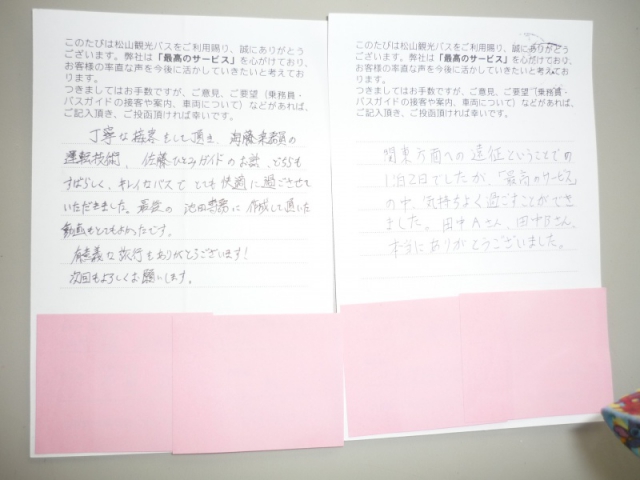 このたびは松山観光バスをご利用賜り、誠にありがとう
ございます。弊社は「最高のサービス」を心がけており、
お客様の率直な声を今後に活かしていきたいと考えてお
ります。
つきましてはお手数ですが、ご意見、ご要望（乗務員・
バスガイドの接客や案内、車両について）などがあれば、
ご記入頂き、ご投函頂ければ幸いです。
丁寧な接客をして頂き、乗務員の
運転技術、佐藤ひとみガイドのお話、どちらも
すばらしく、キレイなバスで とても快適に過ごさせて
いただきました。最後の 池田 に作成して頂いた
動画もとてもよかったです。
有意義な旅行をありがとうございます！
次回もよろしくお願いします。
このたびは松山観光バスをご利用賜り、誠にありがとう
ございます。弊社は「最高のサービス」を心がけており、
お客様の率直な声を今後に活かしていきたいと考えてお
ります。
つきましてはお手数ですが、ご意見、ご要望（乗務員・
バスガイドの接客や案内、車両について）などがあれば、
ご記入頂き、ご投函頂ければ幸いです。
関東方面への遠征ということでの
1泊2日でしたが、「最高のサービス」
の中、気持ちよく過ごすことができ
ました。田中Aさん、田中Bさん、
本当にありがとうございました。